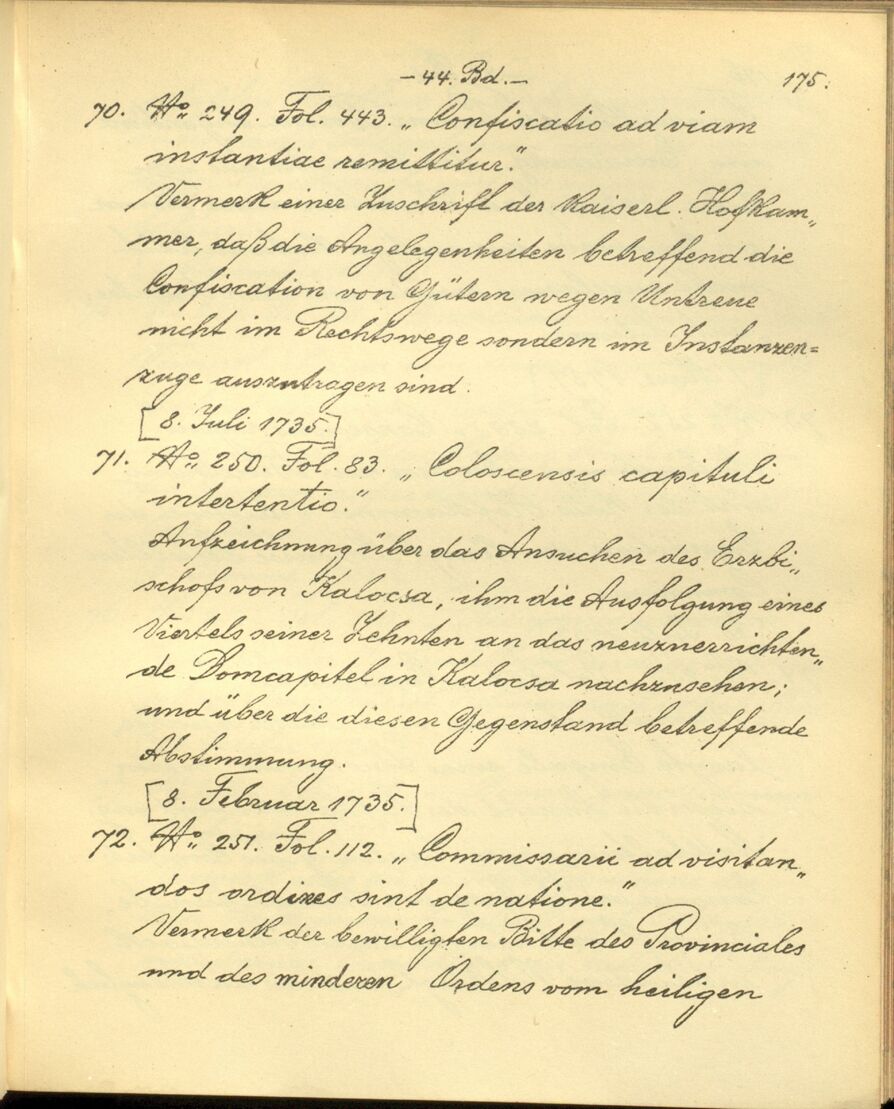 – 44. Bd. –
175.
70. No. 249. Fol. 443. „Confiscatio ad viam
instantiae remittitur."
Vermerk einer Zuschrift der Kaiserl. Hofkam„
mer, daß die Angelegenheiten betreffend die
Confiscation von Gütern wegen Untreue
nicht im Rechtswege sondern im Instanzen=
zuge auszutragen sind.
[8. Juli 1735.]
71. No. 250. Fol. 83. „Coloscensis capituli
intertentio."
Aufzeichnung über das Ansuchen des Erzbi„
schofs von Kalocsa, ihm die Ausfolgung eines
Viertels seiner Zehnten an das neuzuerrichten„
de Domcapitel in Kalocsa nachzusehen;
und über die diesen Gegenstand betreffende
Abstimmung.
[8. Februar 1735.]
72. No. 251. Fol. 112. „Commissarii ad visitan„
dos ordines sint de natione."
Vermerk der bewilligten Bitte des Provinciales
und des minderen Ordens vom heiligen